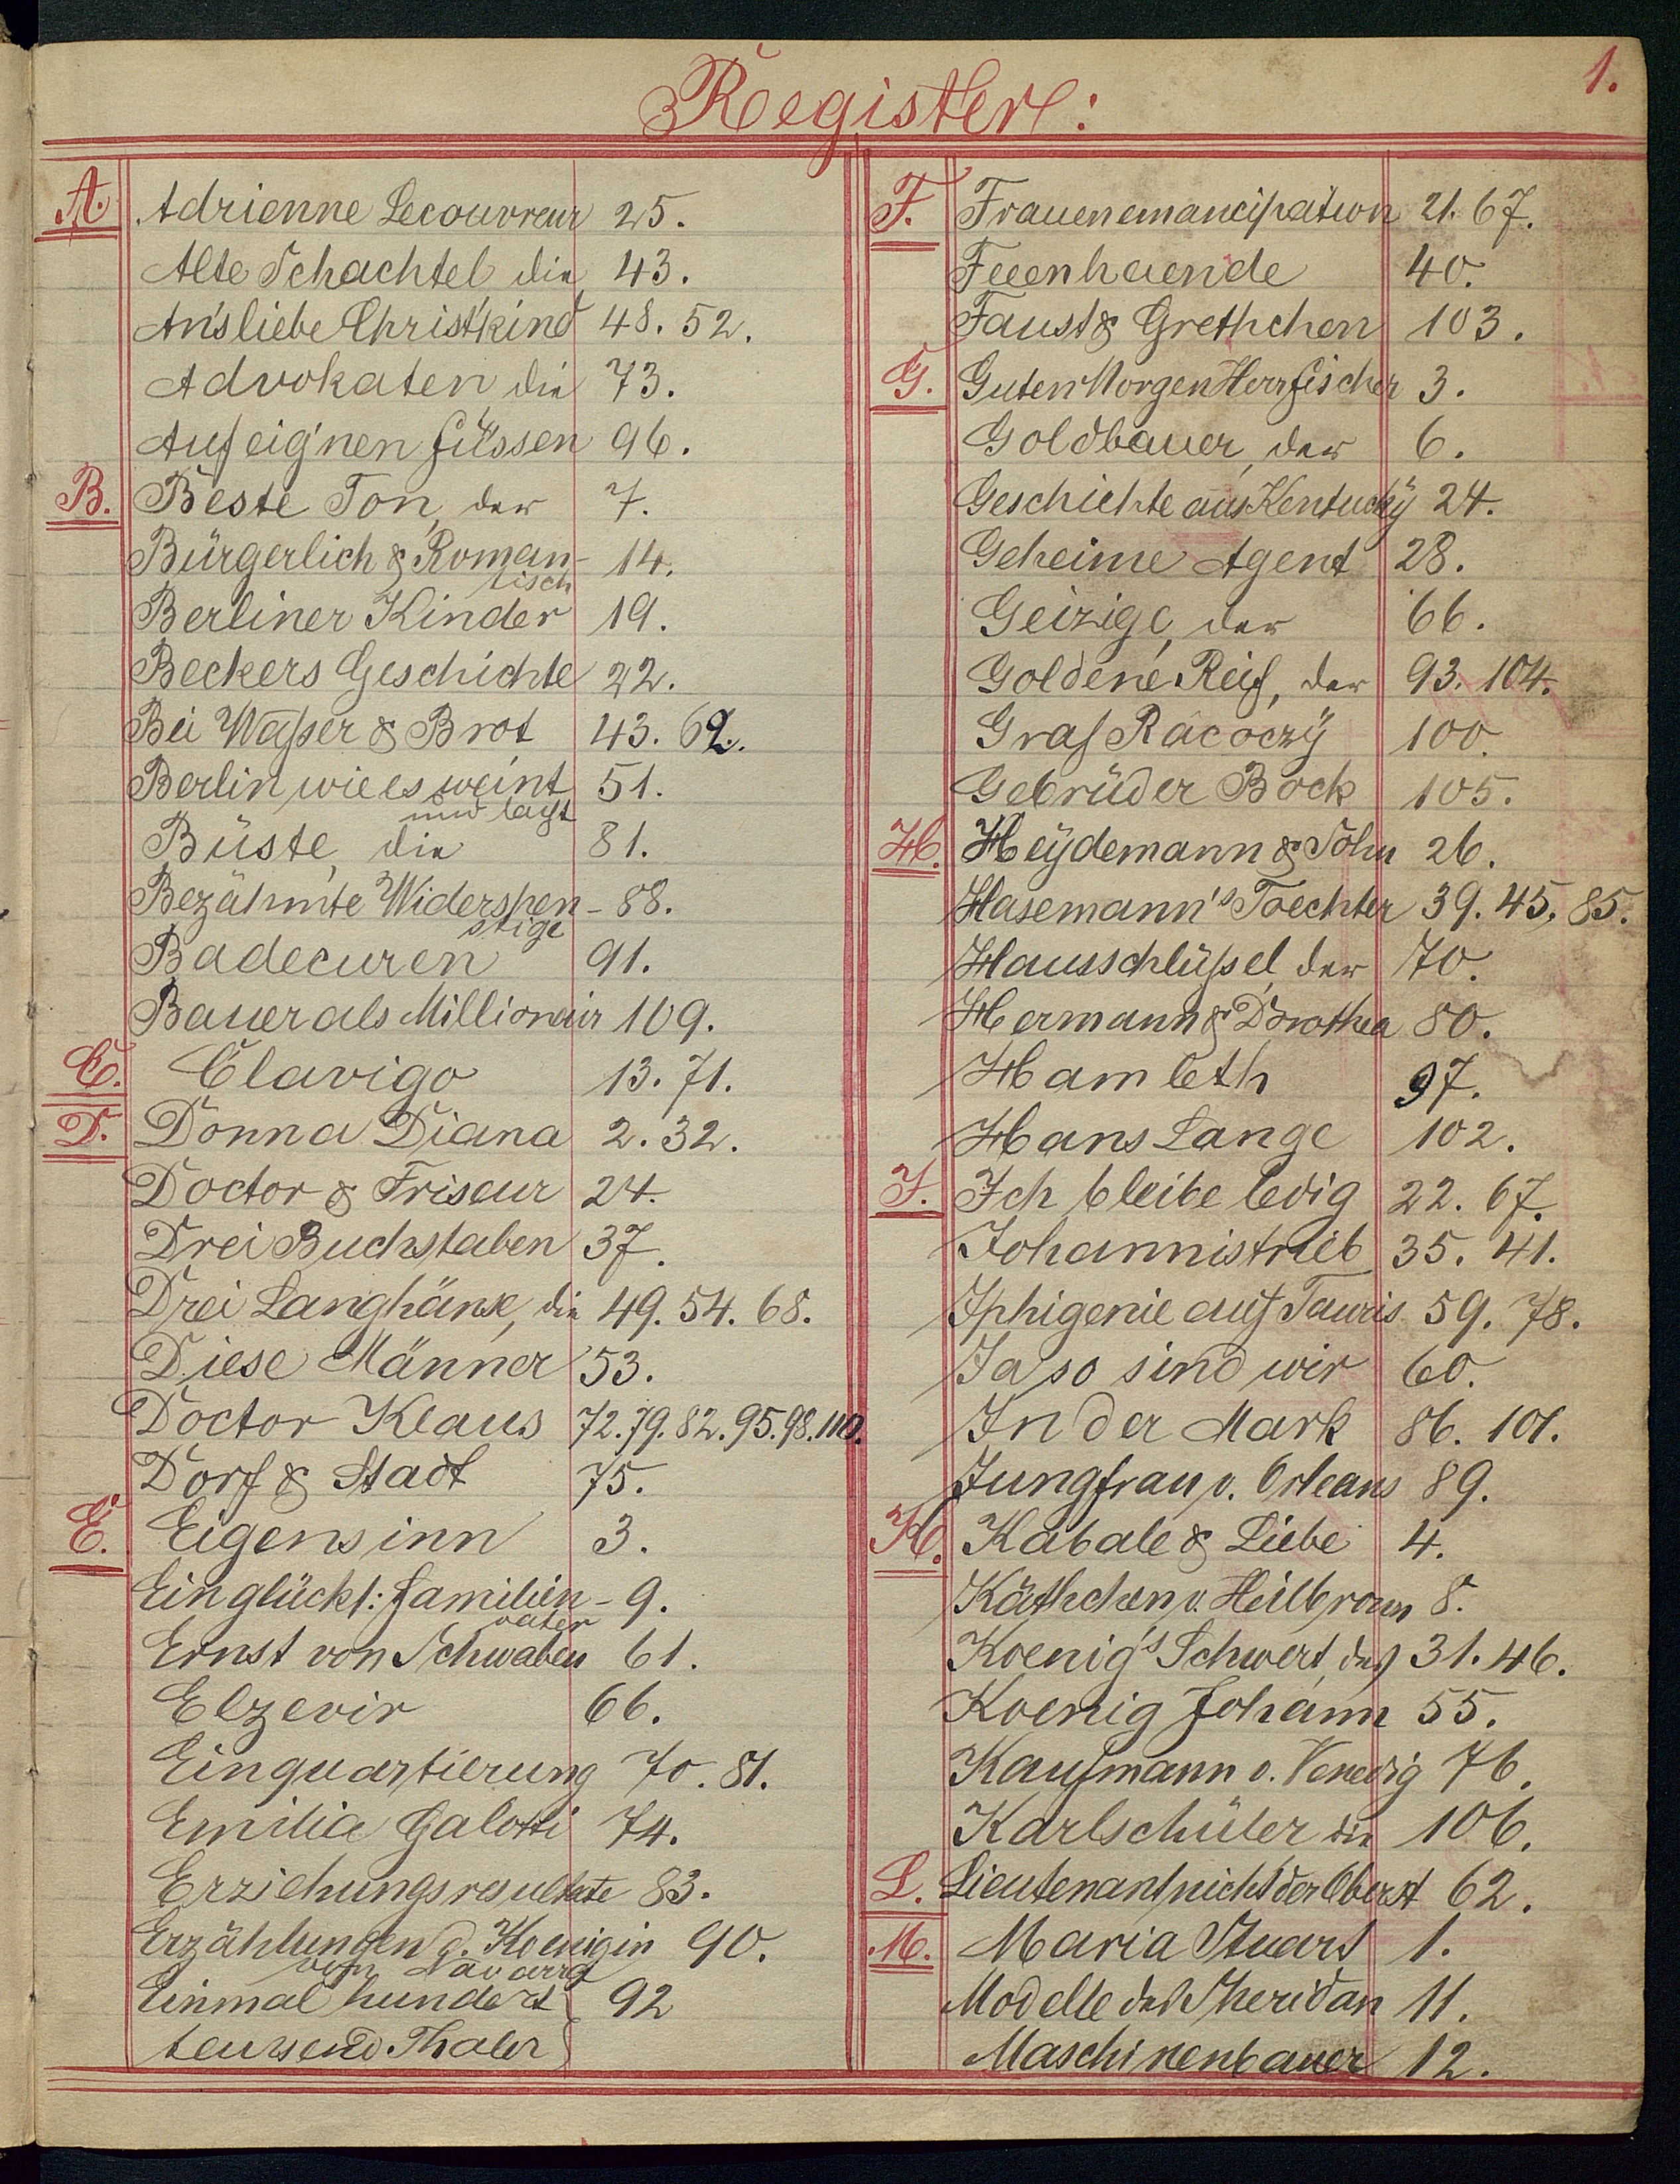 1.
Register:
A. Adrienne Lecouvreur 25.
Alte Schachtel die 43.
An's liebe Christkind 48. 52.
Advokaten die 73.
Auf eig'nen Füssen 96.
B. Beste Ton, der 7.
Bürgerlich & Roman- 14.
tisch
Berliner Kinder 19.
Beckers Geschichte 22.
Bei Waßer & Brot 43. 62.
Berlin, wie es weint 51.
und lacht
Büste, die 81.
Bezähmte Widerspen- 88.
stige
Badecuren 91.
Bauer als Millionair 109.
C. Clavigo 13. 71.
D. Donna Diana 2. 32.
Doctor & Friseur 24.
Drei Buchstaben 37.
Drei Langhänse, die 49. 54. 68.
Diese Männer 53.
Doctor Klaus 72. 79. 82. 95. 98. 110.
Dorf & Stadt 75.
E. Eigensinn 3.
Ein glückl: Familien- 9.
vater
Ernst von Schwaben 61.
Elzevir 66.
Einquartierung 70. 81.
Emilia Galotti 74.
Erziehungsresultate 83.
Erzählungen d. Koenigin 90.
von Navarra
Einmal hundert 92
tausend Thaler
F. Frauenemancipation 21. 67.
Feeenhaende 40.
Faust & Grethchen 103.
G. Guten Morgen Herr Fischer 3.
Goldbauer, der 6.
Geschichte aus Kentucky 24.
Geheime Agent 28.
Geizige, der 66.
Goldene Reif, der 93. 104.
Graf Racoczÿ 100.
Gebrüder Bock 105.
H. Heÿdemann & Sohn 26.
Hasemann's Toechter 39. 45. 85.
Hausschlüßel der 70.
Hermann & Dorothea 80.
Hamleth 97.
Hans Lange 102.
I. Ich bleibe ledig 22. 67.
Johannistrieb 35. 41.
Iphigenie auf Tauris 59. 78.
Ja so sind wir 60.
In der Mark 86. 101.
Jungfrau v. Orleans 89.
K. Kabale & Liebe 4.
Käthchen v. Heilbronn 8.
Koenig's Schwert, des 31. 46.
Koenig Johann 55.
Kaufmann v. Venedig 76.
Karlschüler, die 106.
L. Lieutenant nicht der Oberst 62.
M. Maria Stuart 1.
Modelle des Sheridan 11.
Maschinenbauer 12.